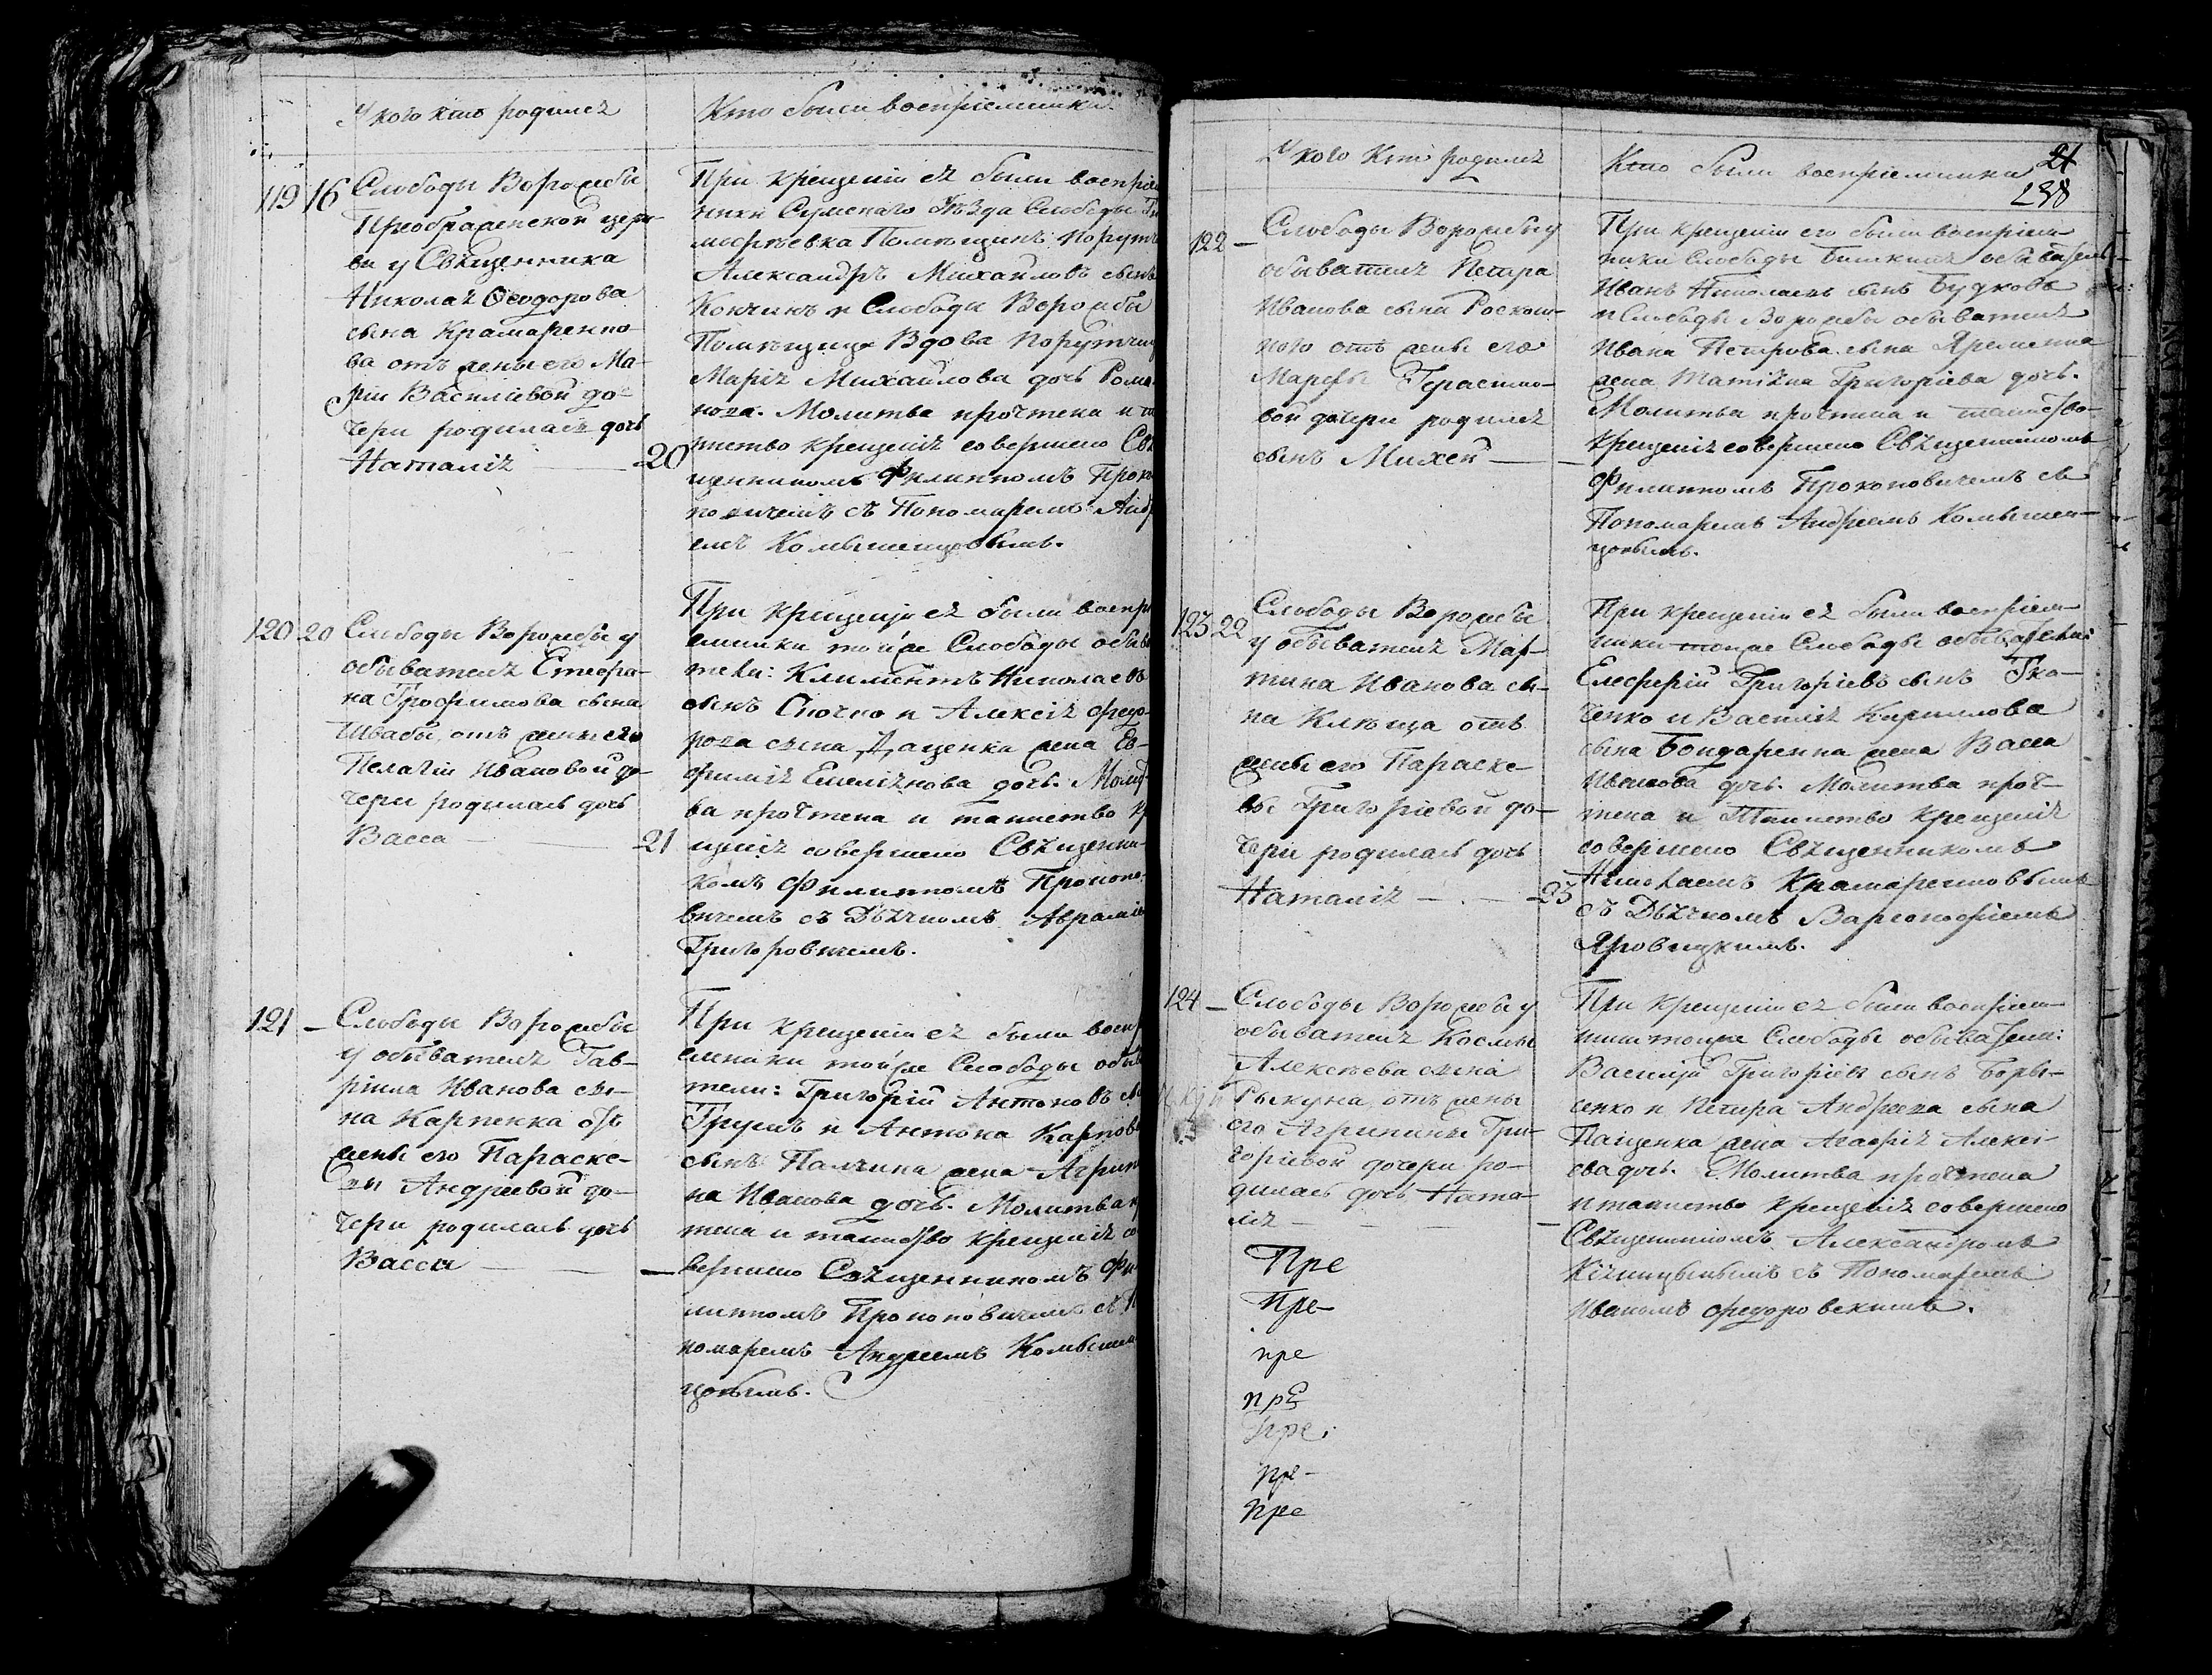 У кого кто родился
Кто были восприемники.
119 16 Слободы Ворожбы
Преображенской церк-
ви у Священника
Николая Ѳеодорова
сына Крамаренко-
ва отъ жены его Ма-
ріи Василіевой до-
чери родилась дочь
Наталія 20
При крещеніи ея были воспріем
ники Сумскаго Уѣзда Слободы
Помѣщикъ порутч
Александръ Михайловъ сынъ
и Слободы Ворожбы
Помѣщица Вдова порутчиц
Марія Михайлова дочь Рома-
нова. Молитва прочтена и та
инство крещенія совершено Свя
щенникомъ Филиппомъ Проко
повичемъ съ Пономаремъ Андр
емъ Комышенцовымъ.
120 20 Слободы Ворожбы у
обывателя Стефа-
на Трофимова сына
Швабы, отъ жены его
Пелагіи Ивановой до-
чери родилась дочь
Васса 21
При крещеніи ея были воспрі
емники тойже Слободы обыва
тели: Климентъ Николаевъ
сынъ Сючко и Алексія Федо-
рова сына Даценка жена Ев-
фимія Емеліянова дочь. Молит
ва прочтена и таинство кр
щенія совершено Священни-
комъ Филиппомъ Прокопо-
вичемъ съ Дьячкомъ Авраміе
Григоровичемъ.
121 - Слободы Ворожбы
у обывателя Гав-
ріила Иванова сы-
на Карпенка отъ
жены его Параске-
вы Андреевой до-
чери родилась дочь
Васса
При крещеніи ея были воспр
емники тойже Слободы обыв
тели: Григорій Антоновъ сы
и Антона Карпов
сынъ жена Агрип
на Иванова дочь. Молитва
тена и таинство крещенія со
вершено Священникомъ Фи
липпомъ Прокоповичемъ съ П
номаремъ Андреемъ Комышен
цовымъ.
У кого кто родился
Кто были восприемники 21
238
122 - Слободы Ворожбы у
обывателя Петра
Иванова сына Роскош-
ного отъ жены его
Марѳы Герасимо-
вой дочери родился
сынъ Михей
При крещеніи его были воспріем-
ники Слободы обыватель
Иванъ Николаевъ сынъ Будковъ
и Слободы Ворожбы обывателя
Ивана Петрова сына Яременка
жена Татіяна Григоріева дочь.
Молитва прочтена и таинство
крещенія совершено Священникомъ
Филиппомъ Прокоповичемъ съ
Пономаремъ Андреемъ Комышен-
цовымъ.
123 22 Слободы Ворожбы
у обывателя Мар-
тина Иванова сы-
на Клюща отъ
жены его Параске-
вы Григоріевой до-
чери родилась дочь
Наталія 23
При крещеніи ея были воспріем-
ники тоиже Слободы обыватели:
Елесферій Григоріевъ сынъ Тка-
ченко и Василія Кирилова
сына Бондаренка жена Васса
Иванова дочь. Молитва проч-
тена и Таинство крещенія
совершено Священникомъ
Николаемъ Крамаренковымъ
съ Дьячкомъ Варсонофіемъ
Яровицкимъ.
124 - Слободы Ворожбы у
обывателя Космы
Алексѣева сына
Рыкуна, отъ жены
его Агрипины Гри-
горіевой дочери ро-
дилась дочь Ната-
лія
При крещеніи ея были воспріем-
ники тоиже Слободы обыватели:
Василій Григоріевъ сынъ Боры-
сенко и Петра Андреева сына
Пащенка жена Агафія Алексі-
ева дочь. Молитва прочтена
и таинство крещенія совершено
Священникомъ Александромъ
съ Пономаремъ
Иваномъ Федоровскимъ.
Пре
Пре-
пре
пре
Пре.
пре-
пре